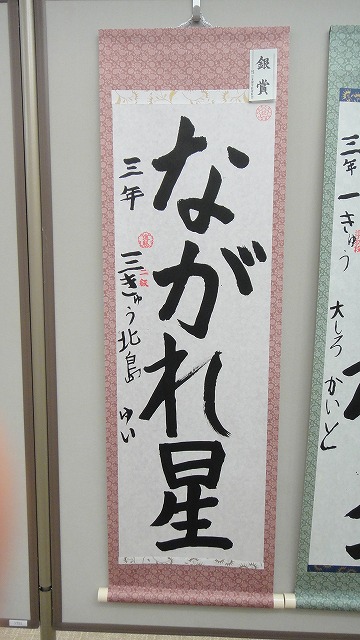 銀賞
ながれ星
三年 三きゅう 北島 ゆい
二級
三年 一きゅう 大しろ かいと